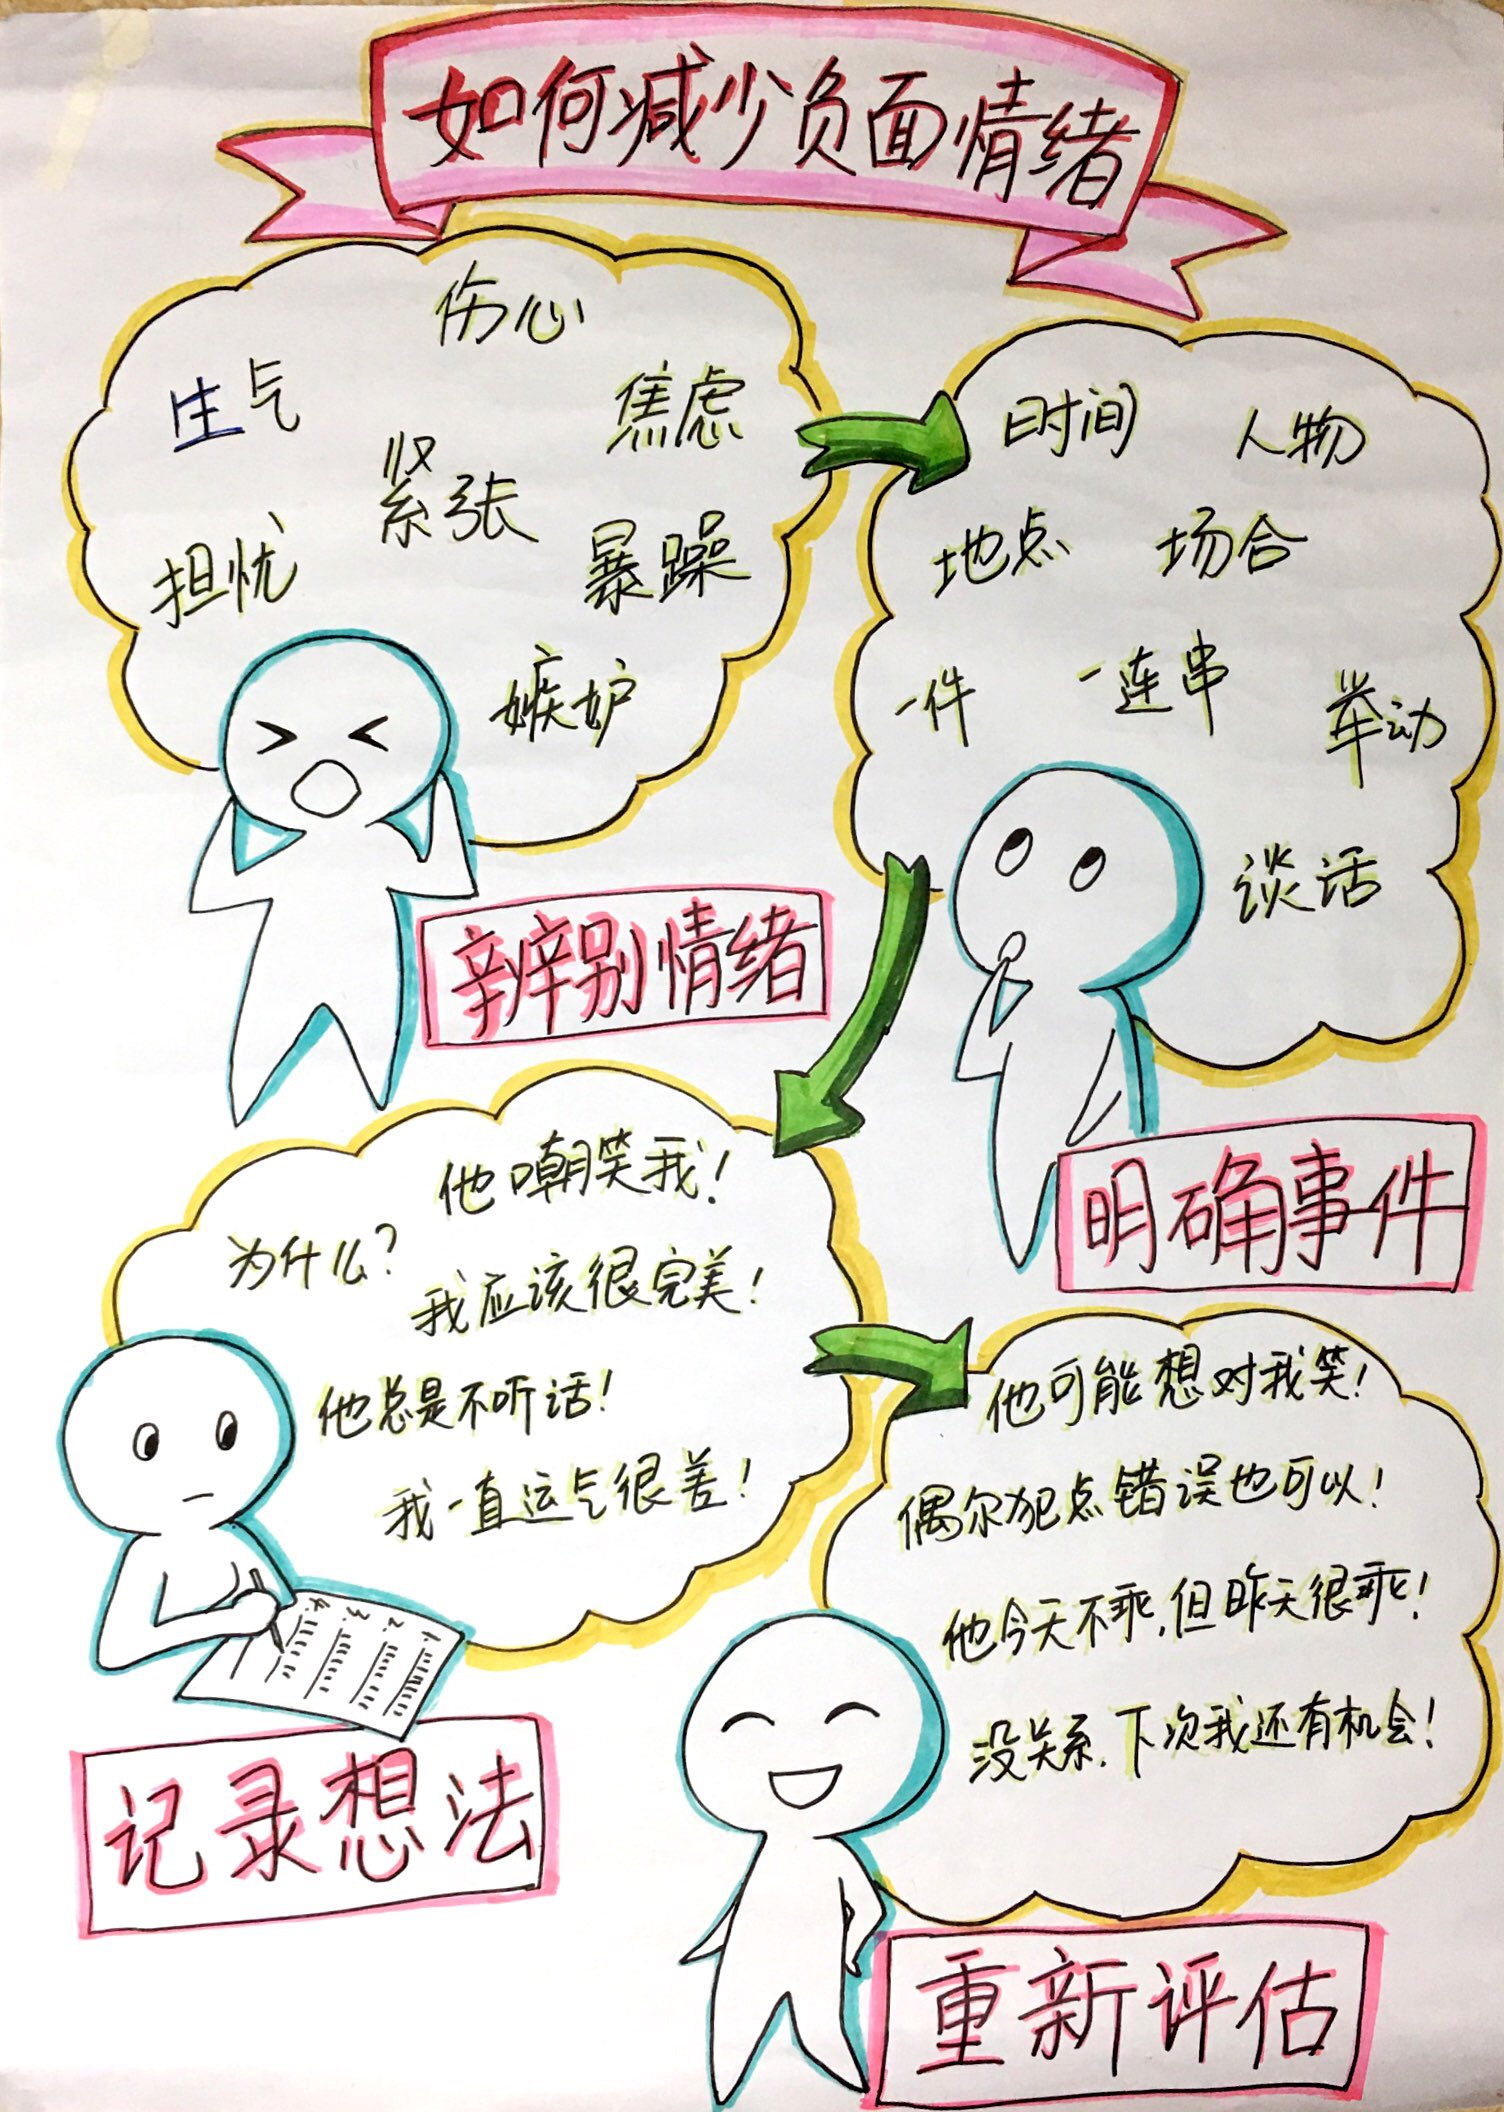 如何减少负面情绪
伤心
生气
焦虑
紧张
担忧
暴躁
嫉妒
辨别情绪
时间 人物
地点 场合
一件 一连串 举动
谈话
明确事件
他嘲笑我!
为什么?
我应该很完美!
他总是不听话!
我一直运气很差!
1.
2.
3.
4.
记录想法
他可能想对我笑!
偶尔犯点错误也可以!
他今天不乖,但昨天很乖!
没关系.下次我还有机会!
重新评估